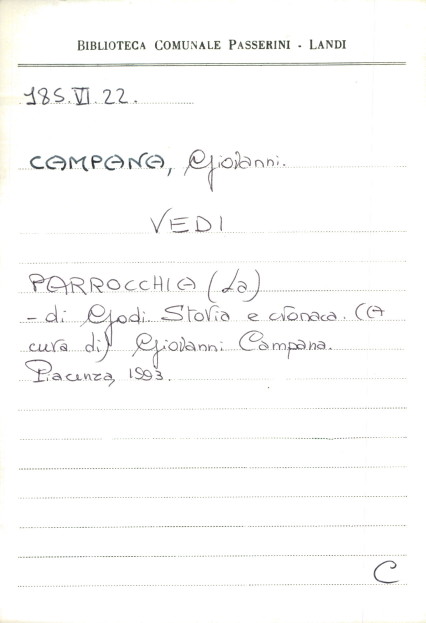 BIBLIOTECA COMUNALE PASSERINI - LANDI
185.VI.22.
CAMPANA, Giovanni.
VEDI
PARROCCHIA (La)
- di Godi. Storia e cronaca. (A
cura di) Giovanni Campana.
Piacenza, 1993.
C